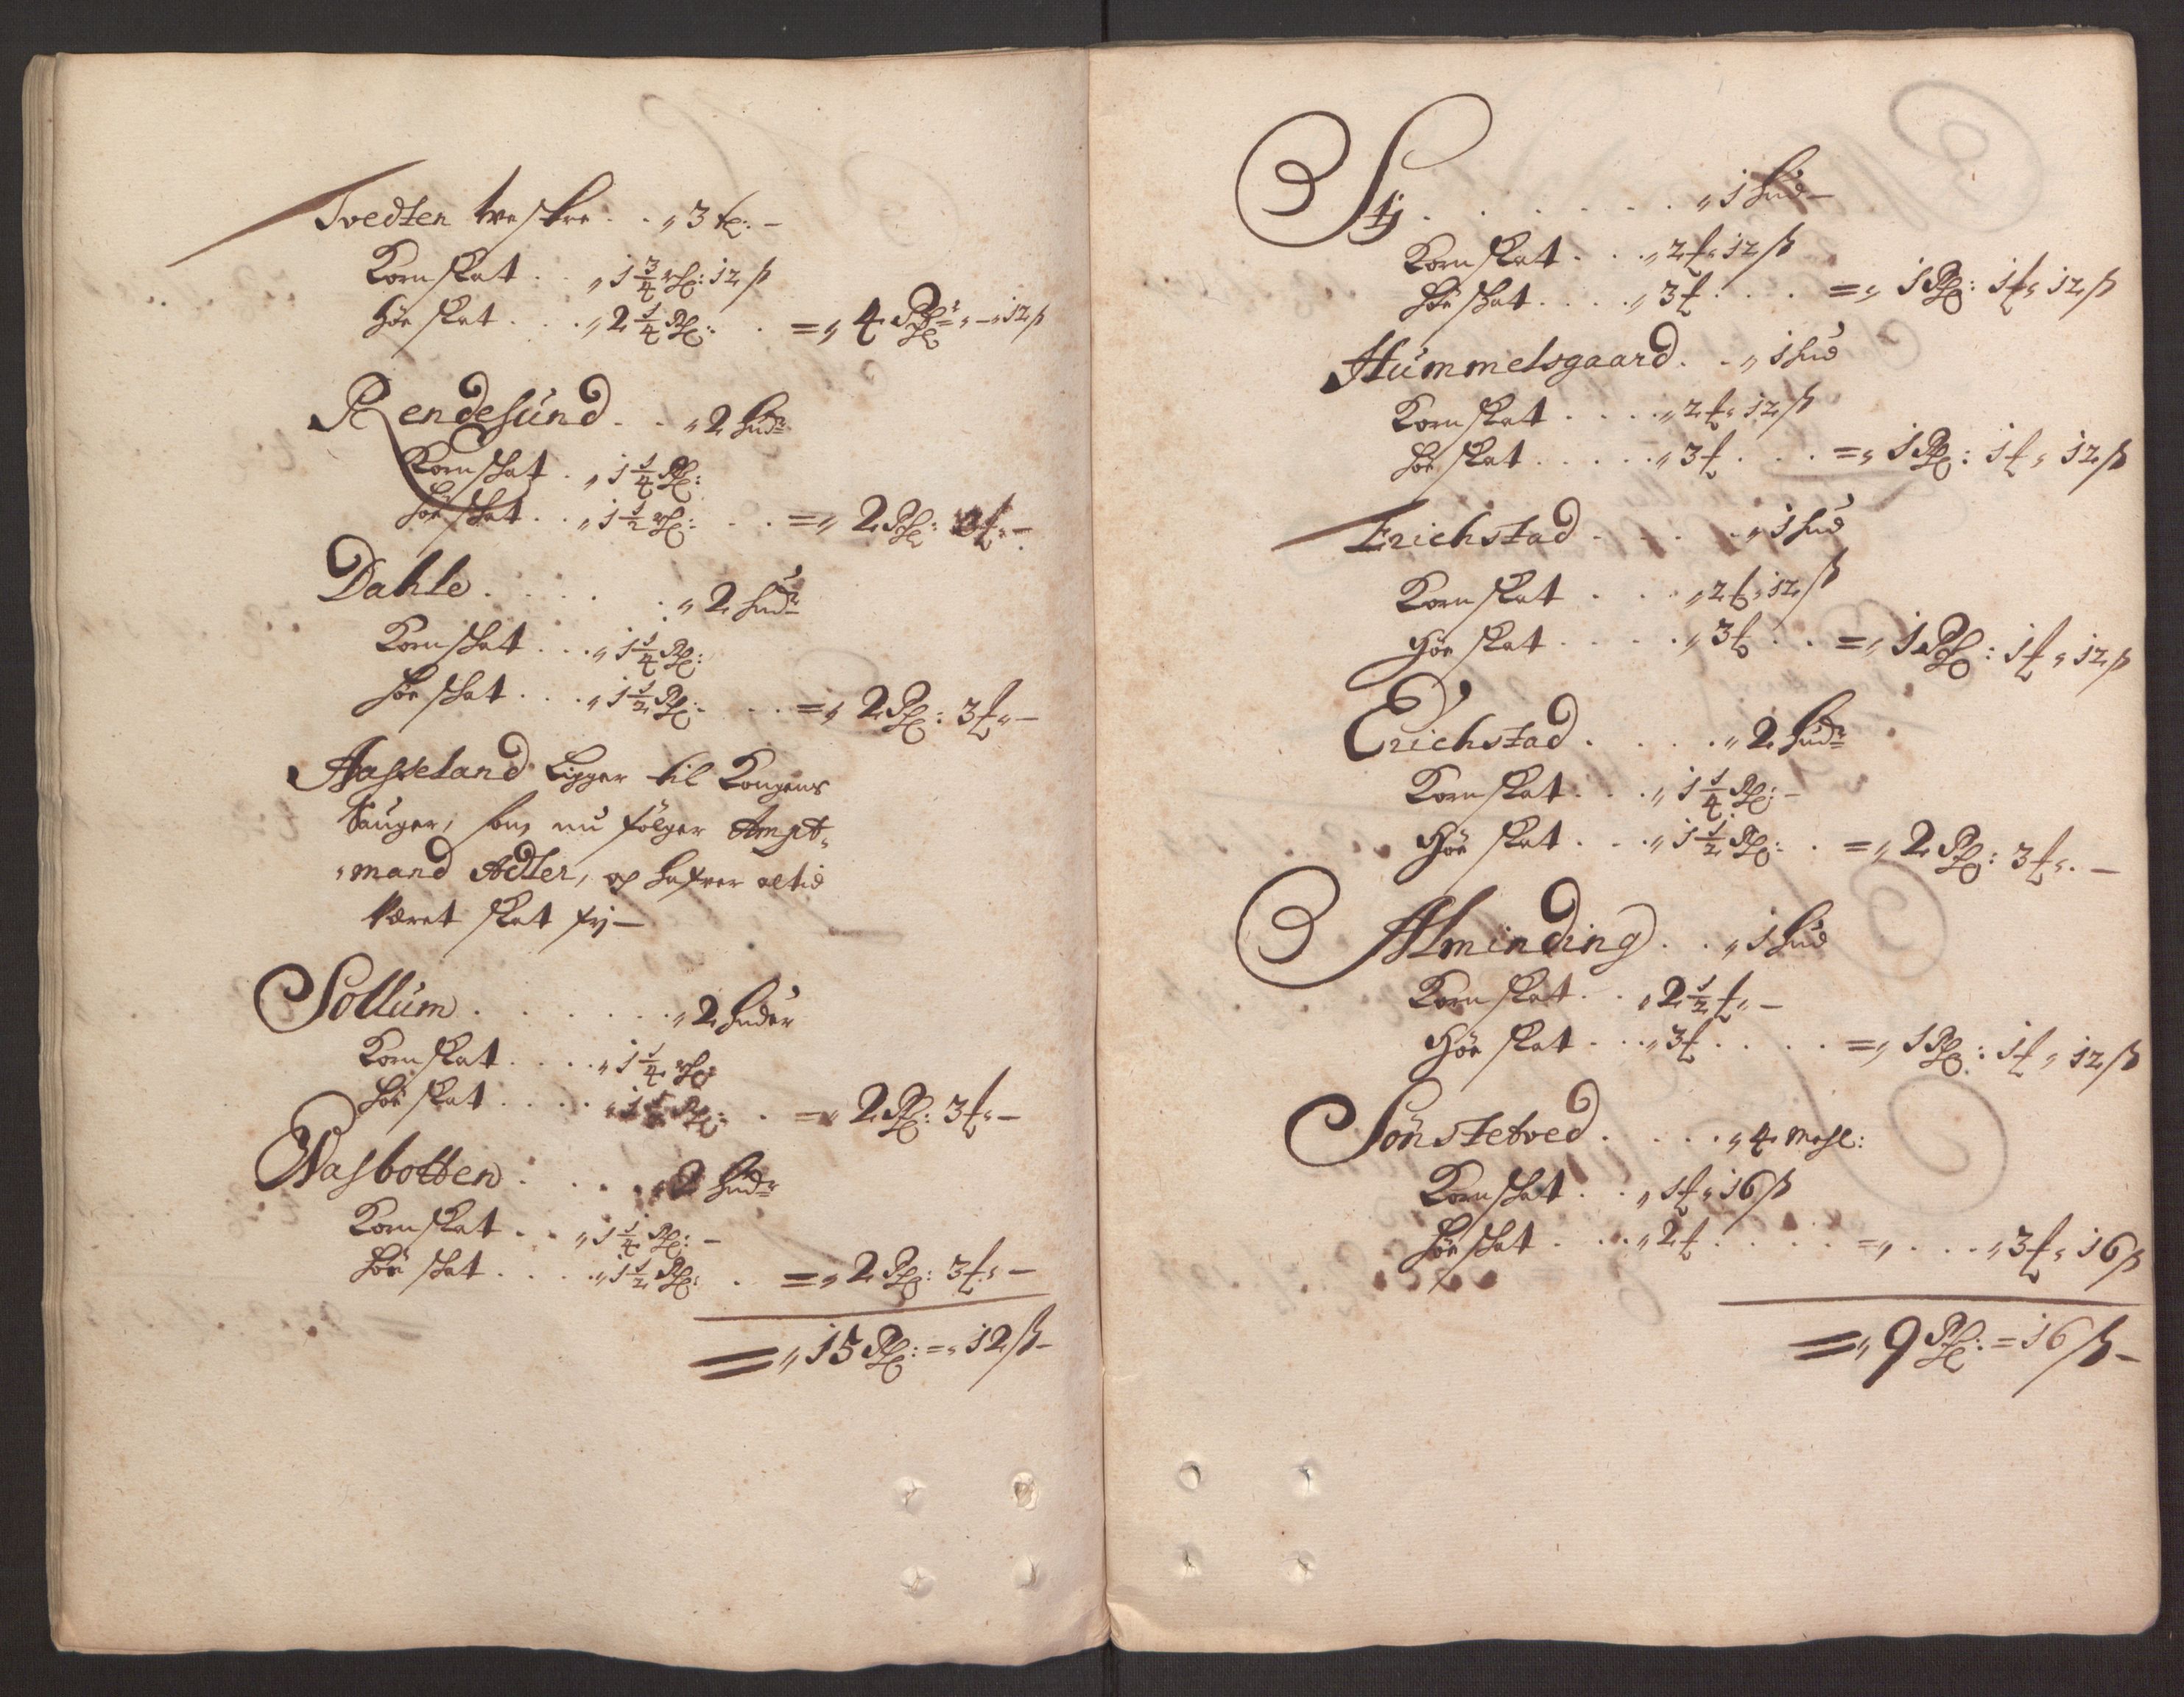 Tvedten westre . . „ 3 tl: –
Kornskat . . „ 1 3/4 rd: 12 ß
Høeskat . . . „ 2 1/4 Rd: . = „ 4 Rdr „ – „ 12 ß
Rendesund . . „ 2 hudr
Kornschat . „ 1 1/4 Rd:
Høeschat . . „ 1 1/2 rd: . . = „ 2 Rd: 3 t „ –
Dahle . . . . . „ 2 hudr
Kornschat . . . „ 1 1/4 Rd:
Høeschat . . . „ 1 1/2 Rd: . . . = „ 2 Rd: 3 t „ –
Aasseland Ligger til Kongens
Sauger, som nu følger Ampt-
mand Adler, og hafver altid
Været skat frj –
Sollum . . . . . . „ 2 huder
Kornskat . . . . „ 1 1/4 rd:
Høeskat . . . . „ 1 1/2 Rd: . = „ 2 Rd: 3 t „ –
Wasbotten . . . . „ 2 hudr
Kornskat . . „ 1 1/4 Rd: –
Høeschat . . . . „ 1 1/2 Rd: . = „ 2 Rd: 3 t „ –
= „ 15 Rd: = „ 12 ß –
Stj . . . . . . . „ 1 hud –
Kornskat . . . „ 2 t „ 12 ß
Høeschat . . . . „ 3 t . . . = „ 1 Rd: 1 t „ 12 ß
Hummelsgaard . . „ 1 hud
Kornskatt . . . . „ 2 t „ 12 ß
Høeskat . . . . . „ 3 t . . . = „ 1 Rd: 1 t „ 12 ß
Erichstad . . . . „ 1 hud
Kornskat . . . „ 2 t „ 12 ß
Høeskat . . . . . „ 3 t . . = „ 1 Rd: 1 t „ 12 ß
Erichstad . . . . „ 2 hudr
Kornskat . . . „ 1 1/4 Rd: –
Høe skat . . . „ 1 1/2 Rd: . = „ 2 Rd: 3 t „ . –
Alminding . . „ 1 hud
Kornskat . . „ 2 1/2 t „ –
Høe skat . . . „ 3 t . . . . = „ 1 Rd: 1 t „ 12 ß
Sønstetved . . . . „ 4 mehl:
Kornschat . . „ 1 t „ 16 ß
Høeschat . . . „ 2 t . . . . = „ . . . „ 3 t „ 16 ß
= „ 9 Rd: = 16 ß –